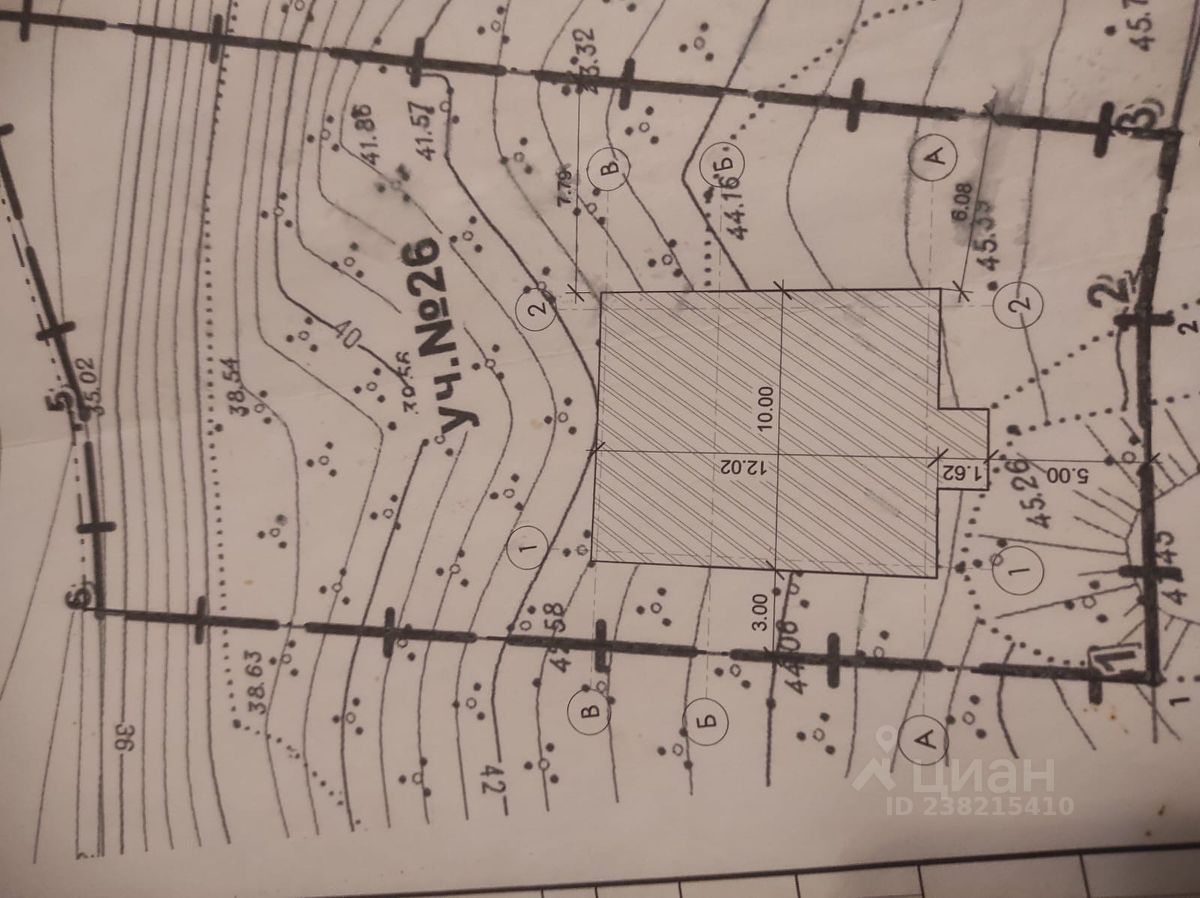 45.7
41.86
41.57
7.79
В
Б
44.16
А
3
6.08
45.39
40
уч.№26
2
2
2
2
5
35.02
38.54
10.00
12.02
1.62
5.00
45.26
1
1
6
3.00
44.06
1
38.63
36
42
В
Б
А
1
циан
ID 238215410